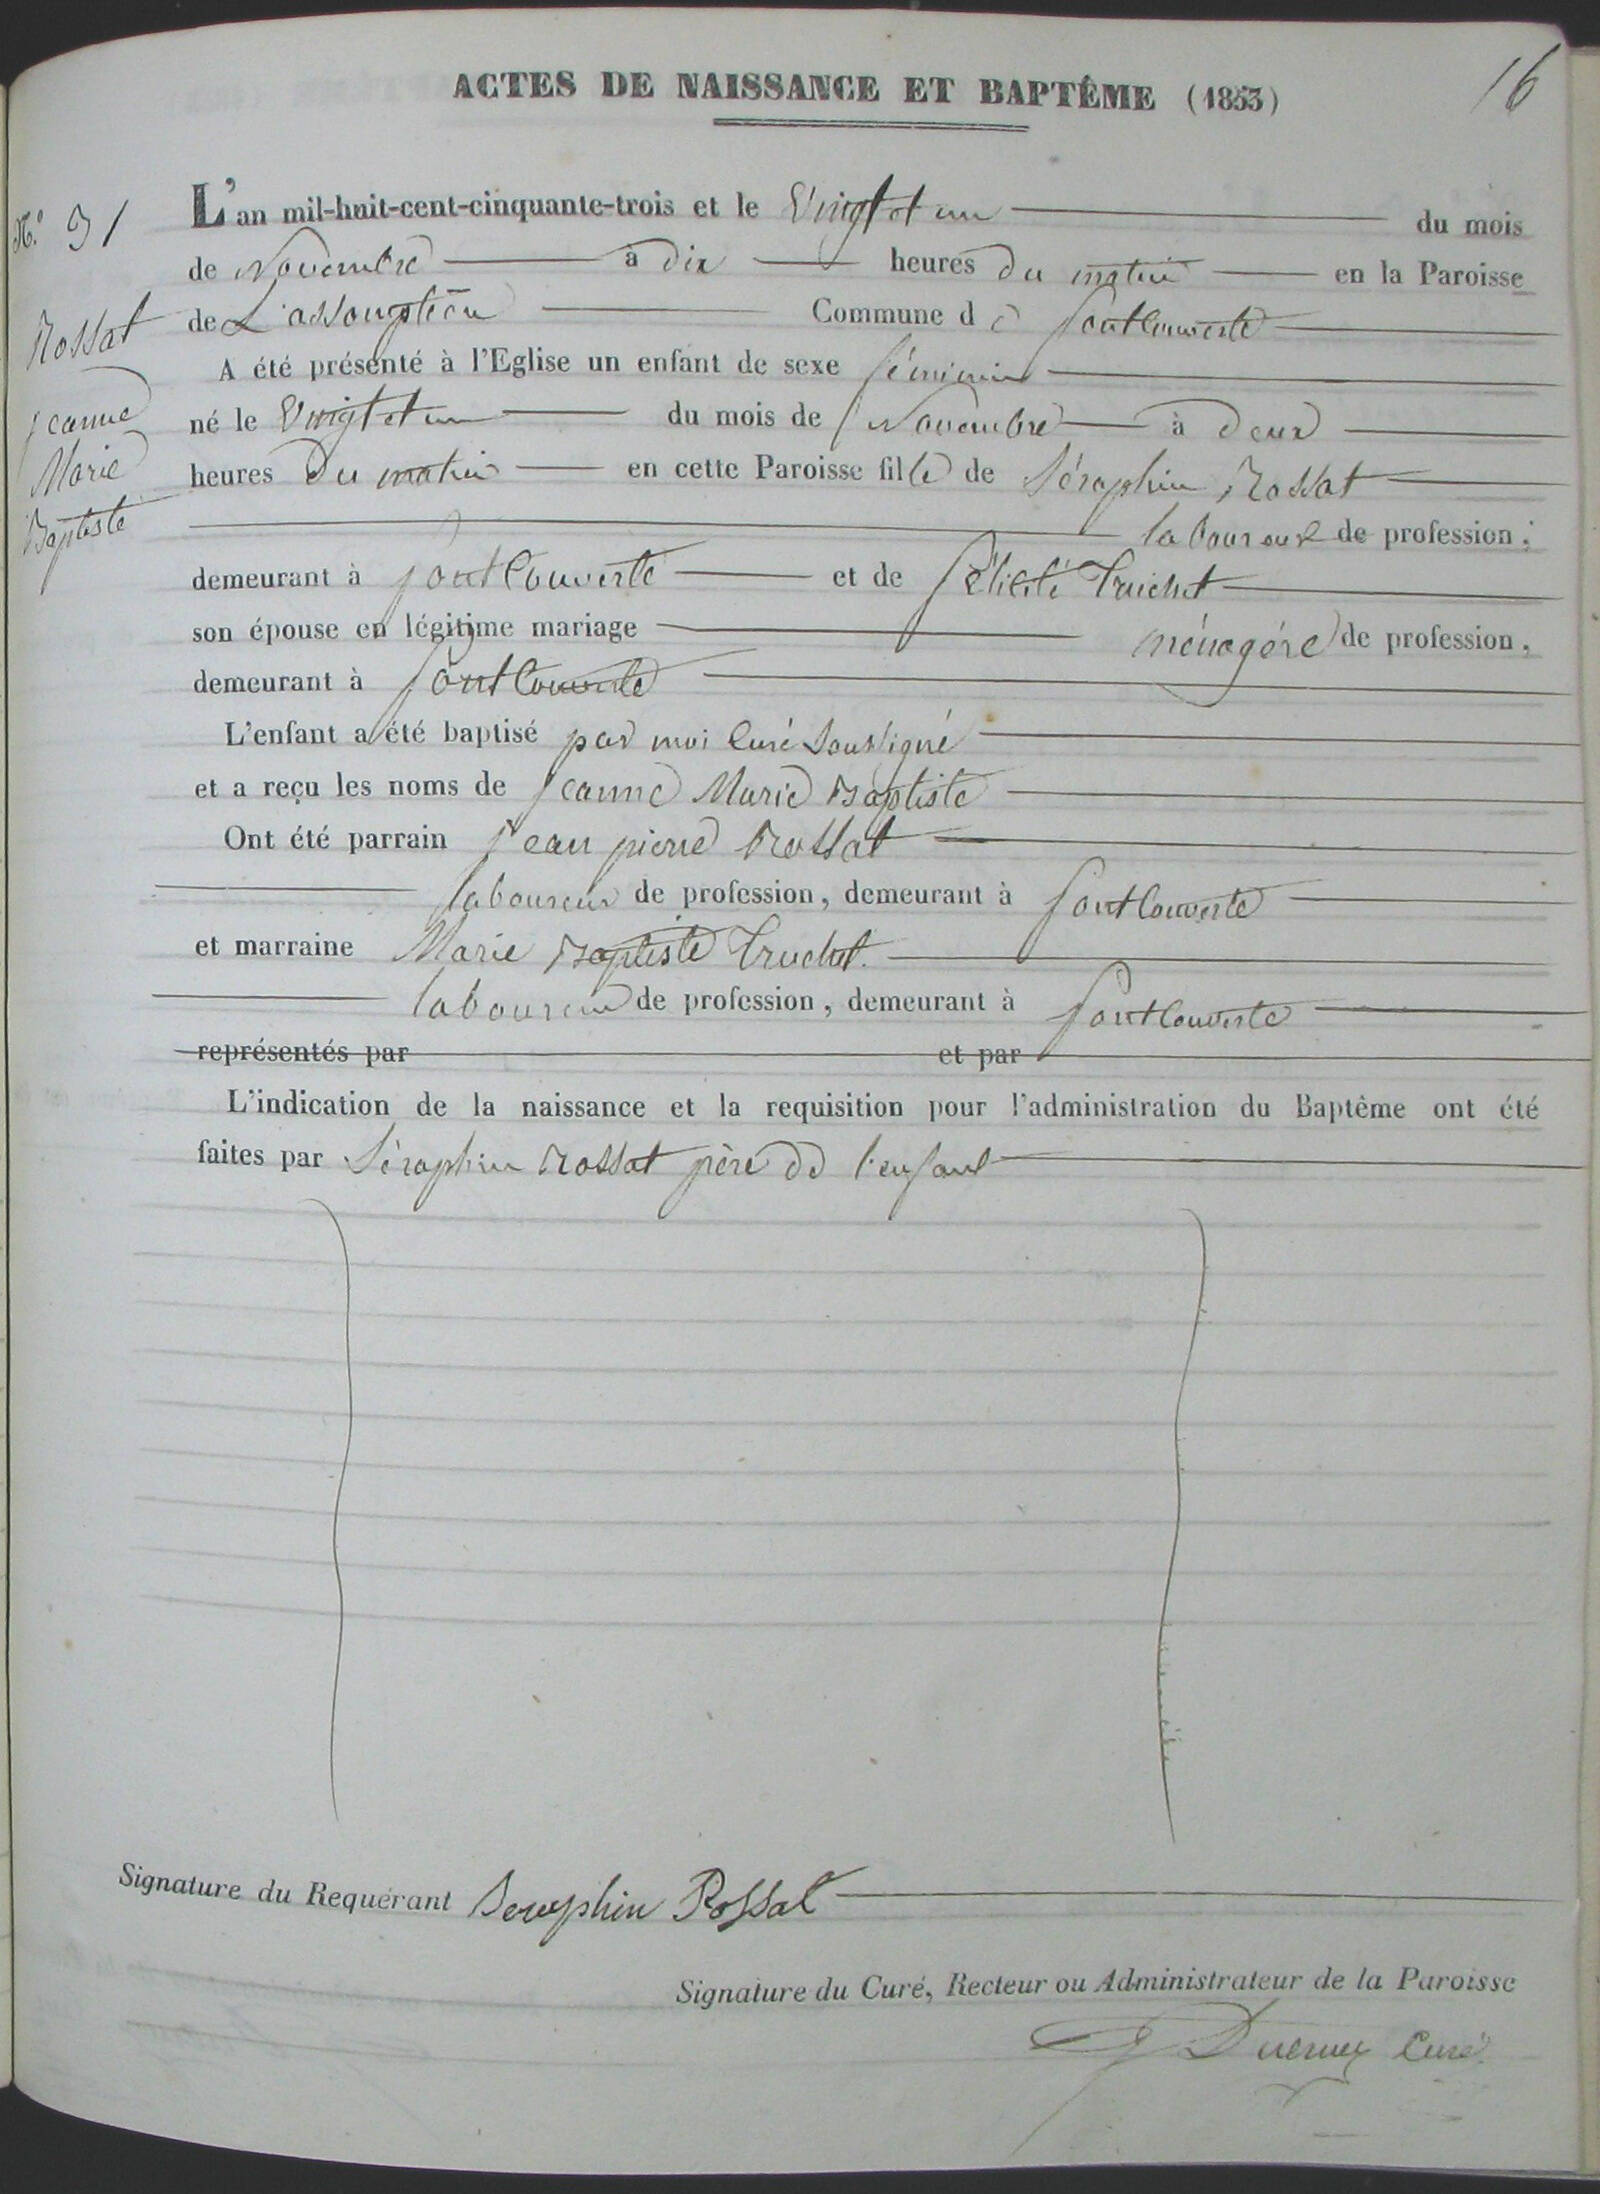 ACTES DE NAISSANCE ET BAPTÊME (1853)
16
N.º 31
Rossat
Jeanne
Marie
Baptiste
L'an mil-huit-cent-cinquante-trois et le Vingt et un du mois
de Novembre à dix heures du matin en la Paroisse
de L'assomption Commune de fontcouverte
A été présenté à l'Eglise un enfant de sexe féminin
né le Vingt et un du mois de Novembre à deux
heures Du matin en cette Paroisse fille de Séraphin Rossat
laboureur de profession;
demeurant à fontcouverte et de félicité Truchet
son épouse en légitime mariage ménagère de profession,
demeurant à fontcouverte
L'enfant a été baptisé par moi Curé Soussigné
et a reçu les noms de Jeanne Marie Baptiste
Ont été parrain Jean pierre Rossat
laboureur de profession, demeurant à fontcouverte
et marraine Marie Baptiste Truchet.
laboureur de profession, demeurant à fontcouverte
représentés par et par
L'indication de la naissance et la requisition pour l'administration du Baptême ont été
faites par Séraphin Rossat père de l'enfant
Signature du Requérant Seraphin Rossat
Signature du Curé, Recteur ou Administrateur de la Paroisse
Curé